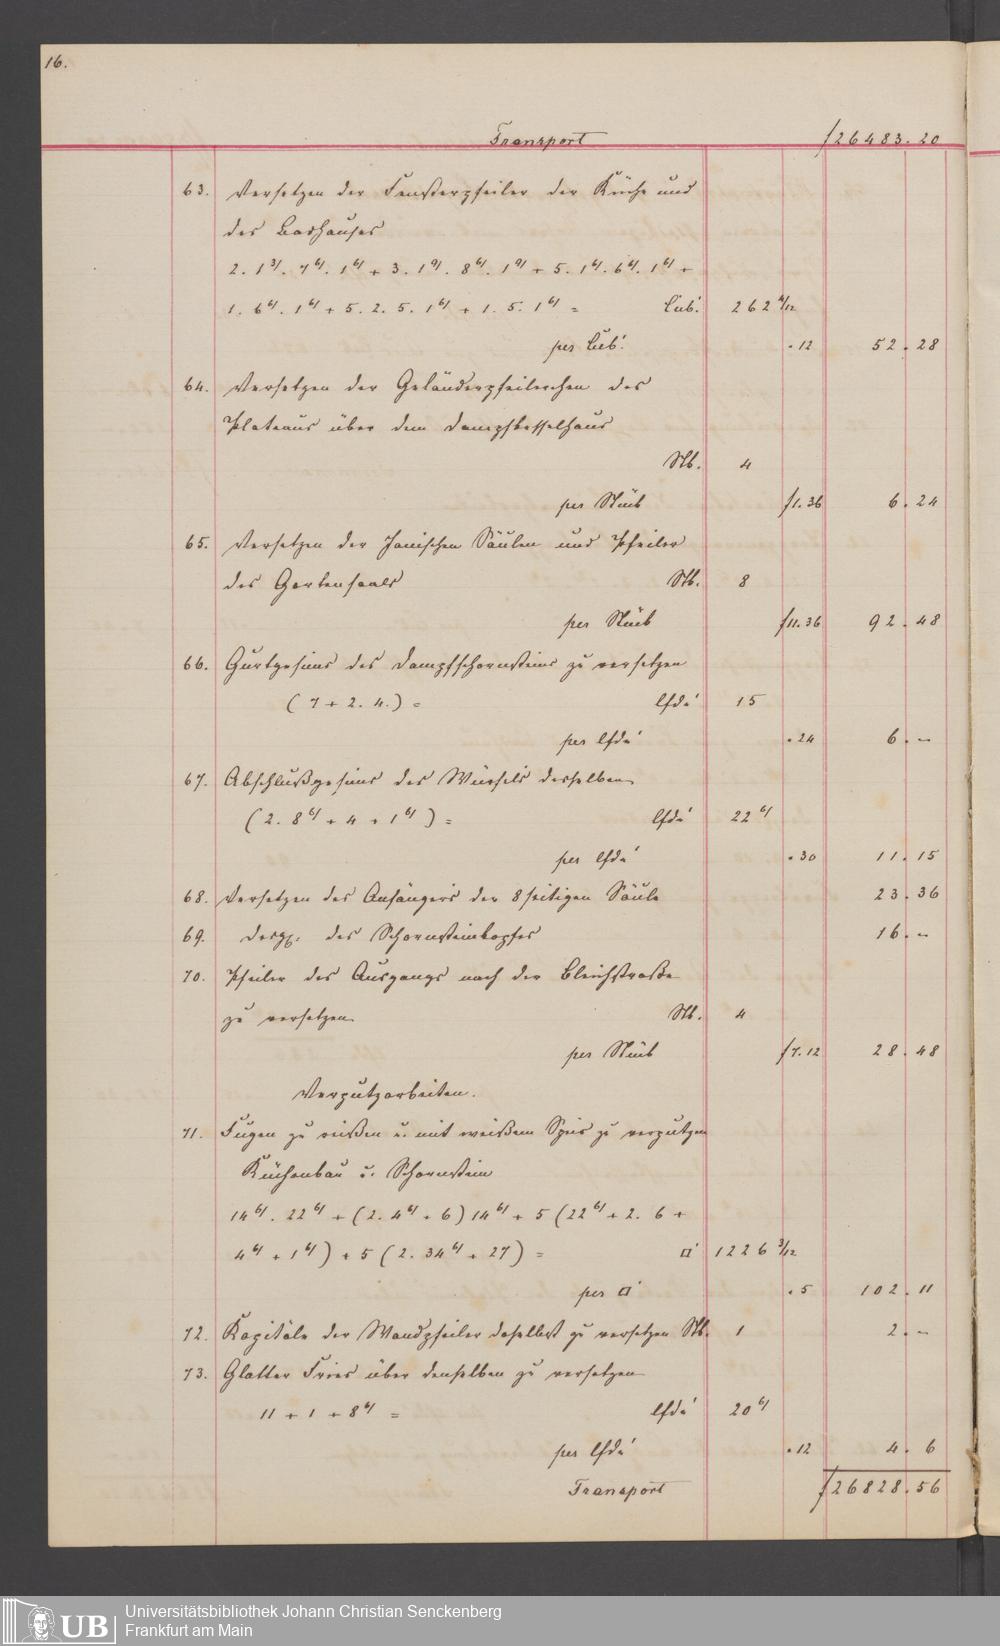 16.
Transport f 26483. 20
63. Versetzen der Fensterpfeiler der Küche und
des Badhauses
2. 1 3/. 7 6/. 1 6/ + 3. 1 9/. 8 6/. 1 9/ + 5. 1 6/. 6 6/. 1 6/ +
1. 6 6/. 1 6/ + 5. 2. 5. 1 6/ + 1. 5. 1 6/ = Cub.' 262 4/12
per Cub.' . 12 52. 28
64. Versetzen der Geländerpfeilerchen des
Plateaus über dem Dampfkesselhaus
Stk. 4
per Stück f 1. 36 6. 24
65. Versetzen der Jonischen Säulen und Pfeiler
des Gartensaals Stk. 8
per Stück f 11. 36 92. 48
66. Gurtgesims des Dampfschornsteins zu versetzen
(7 + 2. 4.) = lfd.' 15
per lfd.' . 24 6. –
67. Abschlußgesims des Würfels desselben
(2. 8 6/ + 4 + 1 6/) = lfd.' 22 6/
per lfd.' . 30 11. 15
68. Versetzen des Anfängers der 8seitigen Säule 23. 36
69. desgl. des Schornsteinkopfes 16. –
70. Pfeiler des Ausgangs nach der Bleichstraße
zu versetzen Stk. 4
per Stück f 7. 12 28. 48
Verputzarbeiten.
71. Fugen zu reißen u. mit weißem Speis zu verputzen
Küchenbau u. Schornstein
14 6/. 22 6/ + (2. 4 6/ + 6) 14 6/ + 5 (22 6/ + 2. 6 +
4 6/ + 1 6/) + 5 (2. 34 6/ + 27) = □' 1226 3/12
per □' . 5 102. 11
72. Kapitäle der Wandpfeiler daselbst zu versetzen Stk. 1 2. –
73. Glatter Fries über denselben zu versetzen
11 + 1 + 8 6/ = lfd.' 20 6/
per lfd.' . 12 4. 6
Transport f 26828. 56
UB
Universitätsbibliothek Johann Christian Senckenberg
Frankfurt am Main